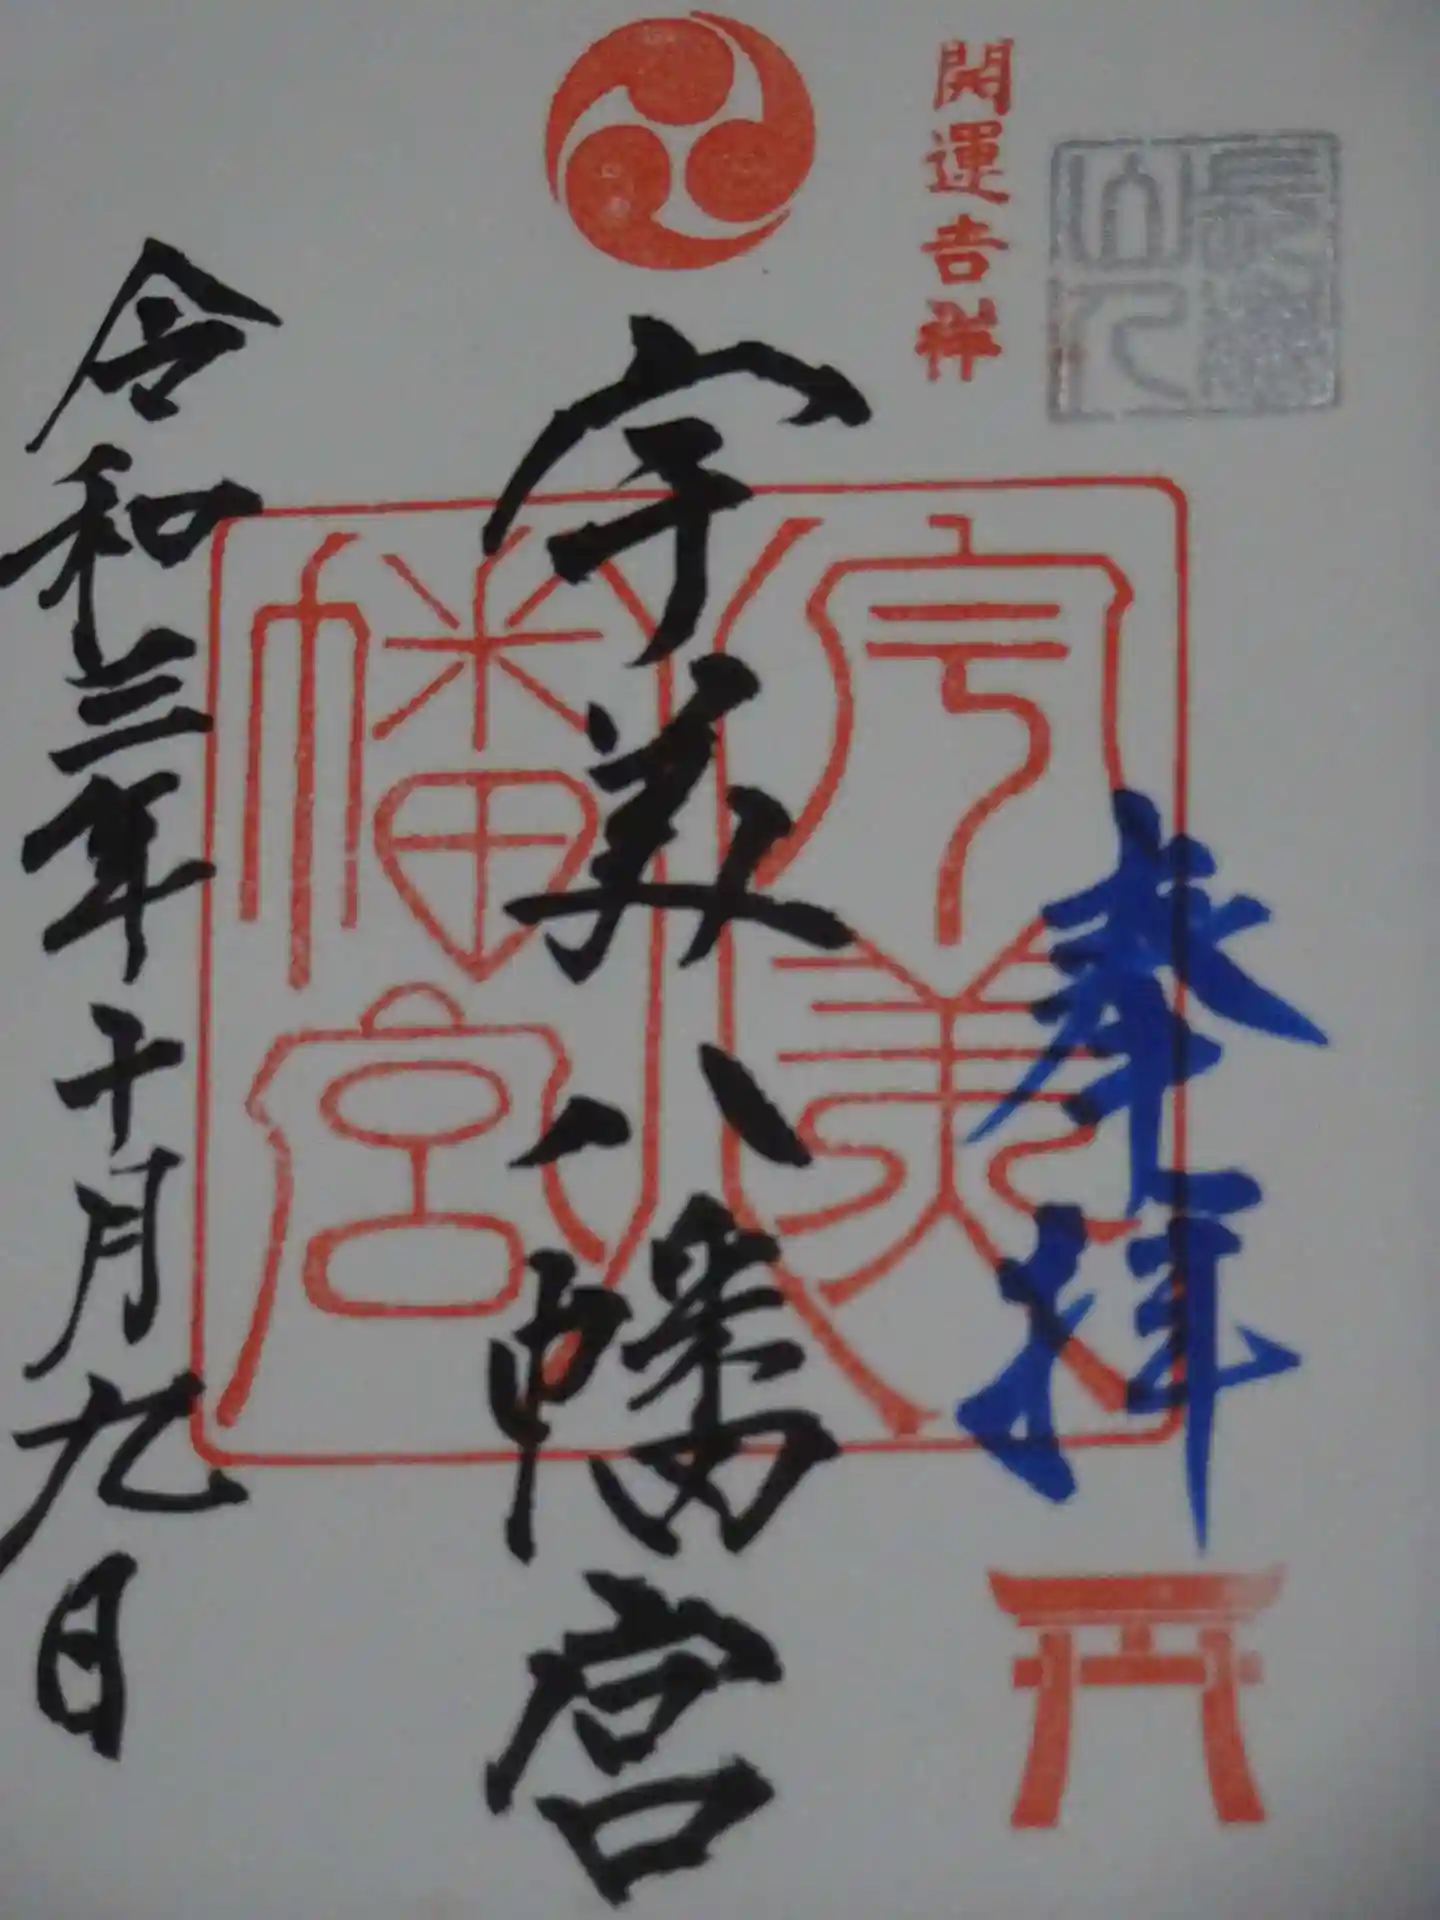 開運吉祥
奉拝
宇美八幡宮
宇美
幡宮
令和三年十月九日